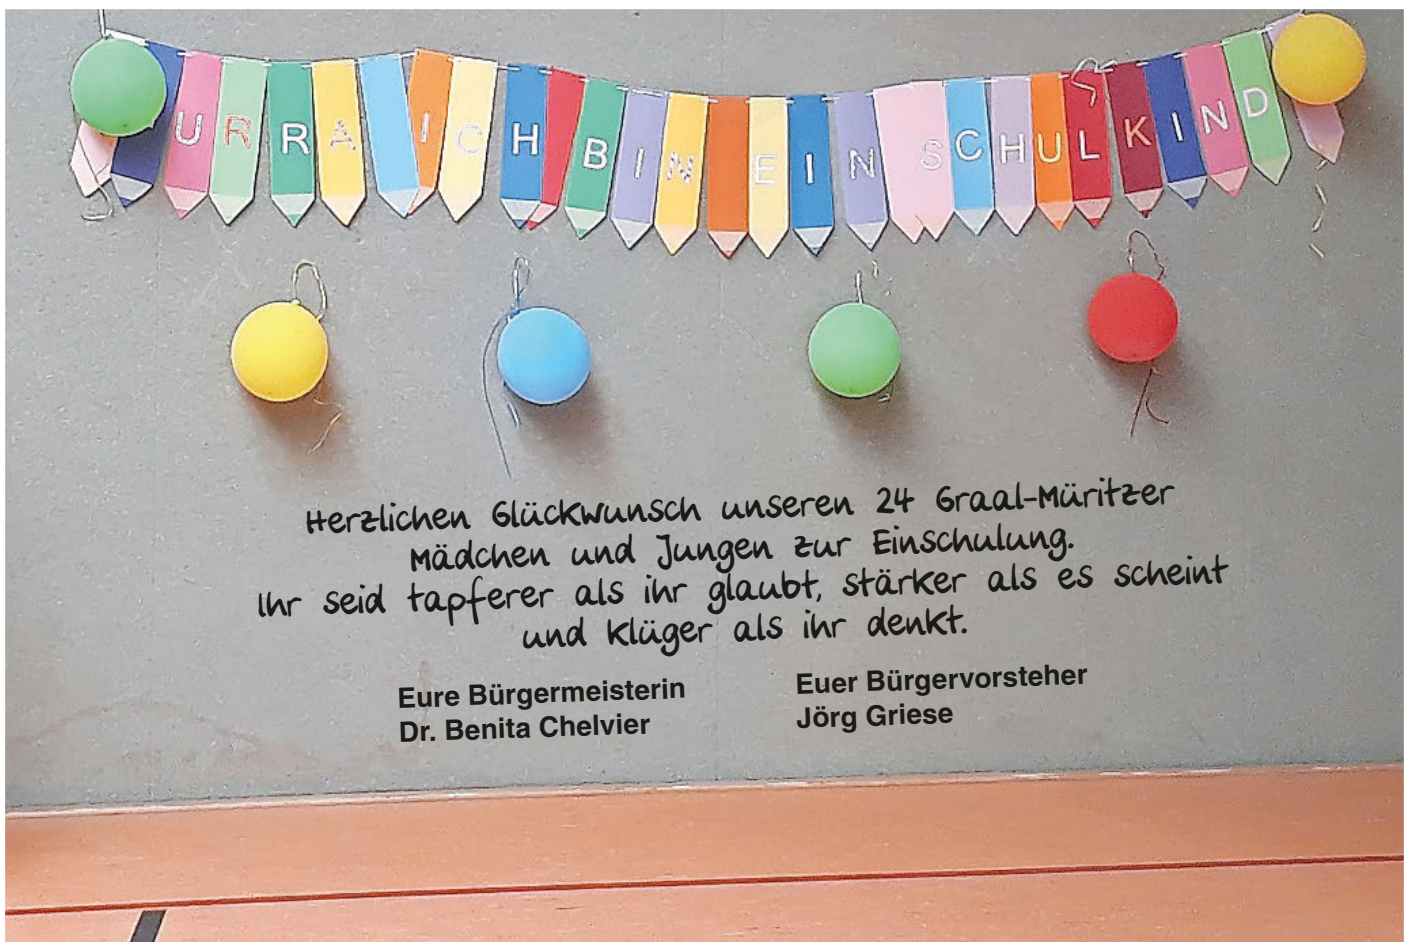 URRA ICH BIN EIN SCHULKIND
Herzlichen Glückwunsch unseren 24 Graal-Müritzer
Mädchen und Jungen zur Einschulung.
Ihr seid tapferer als ihr glaubt, stärker als es scheint
und klüger als ihr denkt.
Eure Bürgermeisterin
Dr. Benita Chelvier
Euer Bürgervorsteher
Jörg Griese